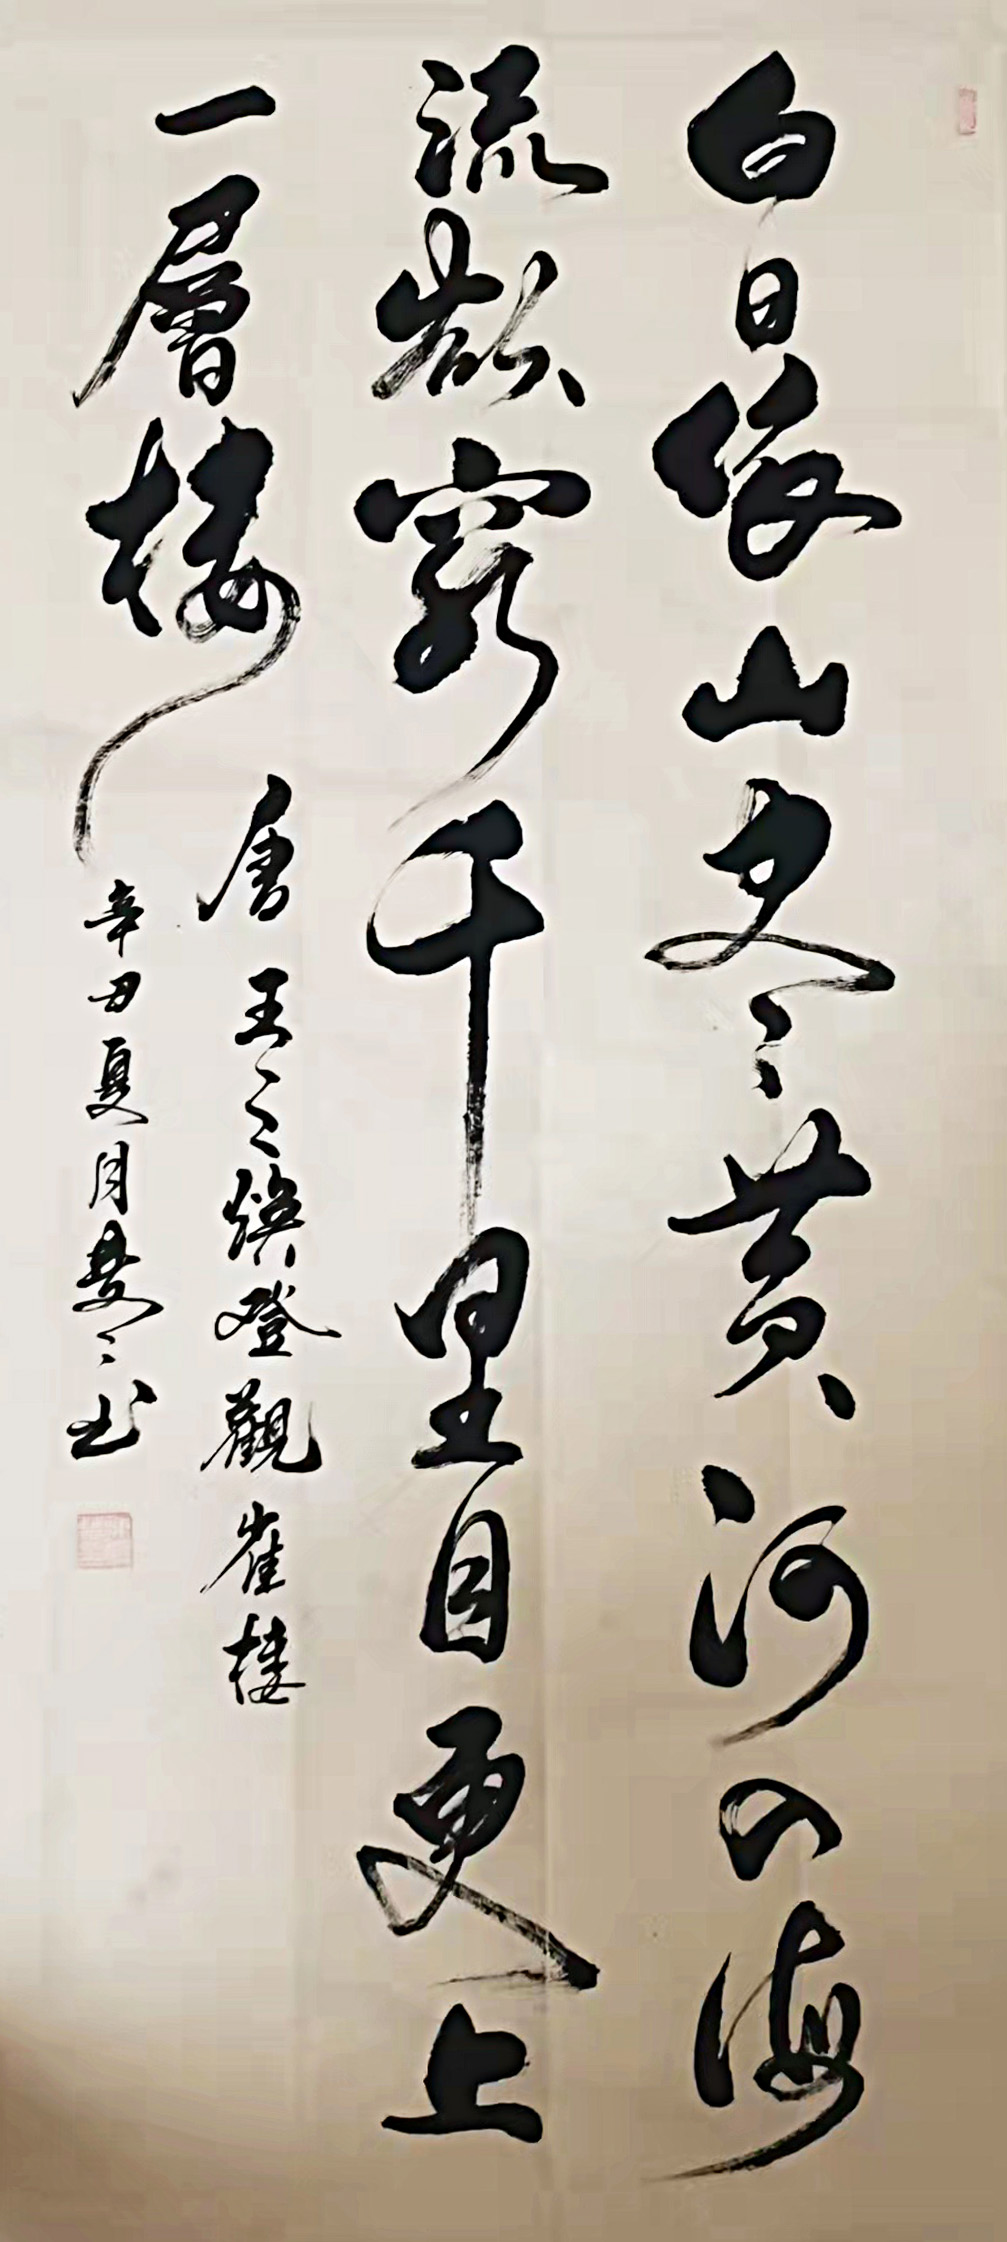 白日依山尽黄河入海
流欲窮千里目更上
一層楼
唐王之焕登觀雀楼
辛丑夏月书